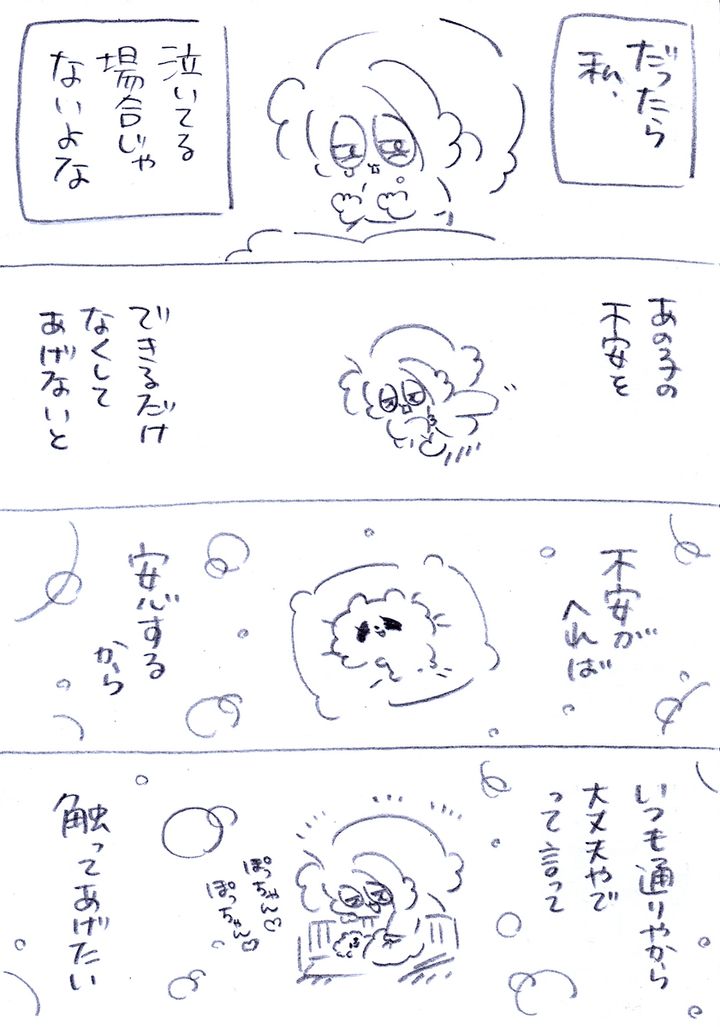 だったら
私、
泣いてる
場合じゃ
ないよな
あの子の
不安を
できるだけ
なくして
あげないと
不安が
へれば
安心する
から
いつも通りやから
大丈夫やで
って言って
ぽっちゃ
ぽっちゃ
触ってあげたい